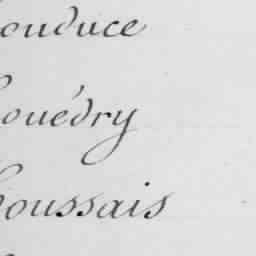 onduce
ouédry
oussais